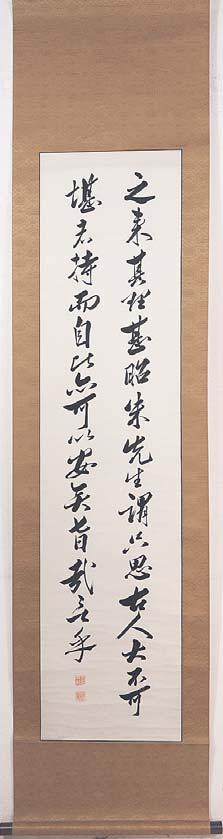 之来其甚昭朱先生謂只思古人大不可
堪者持而自比亦可以安矣旨哉言乎